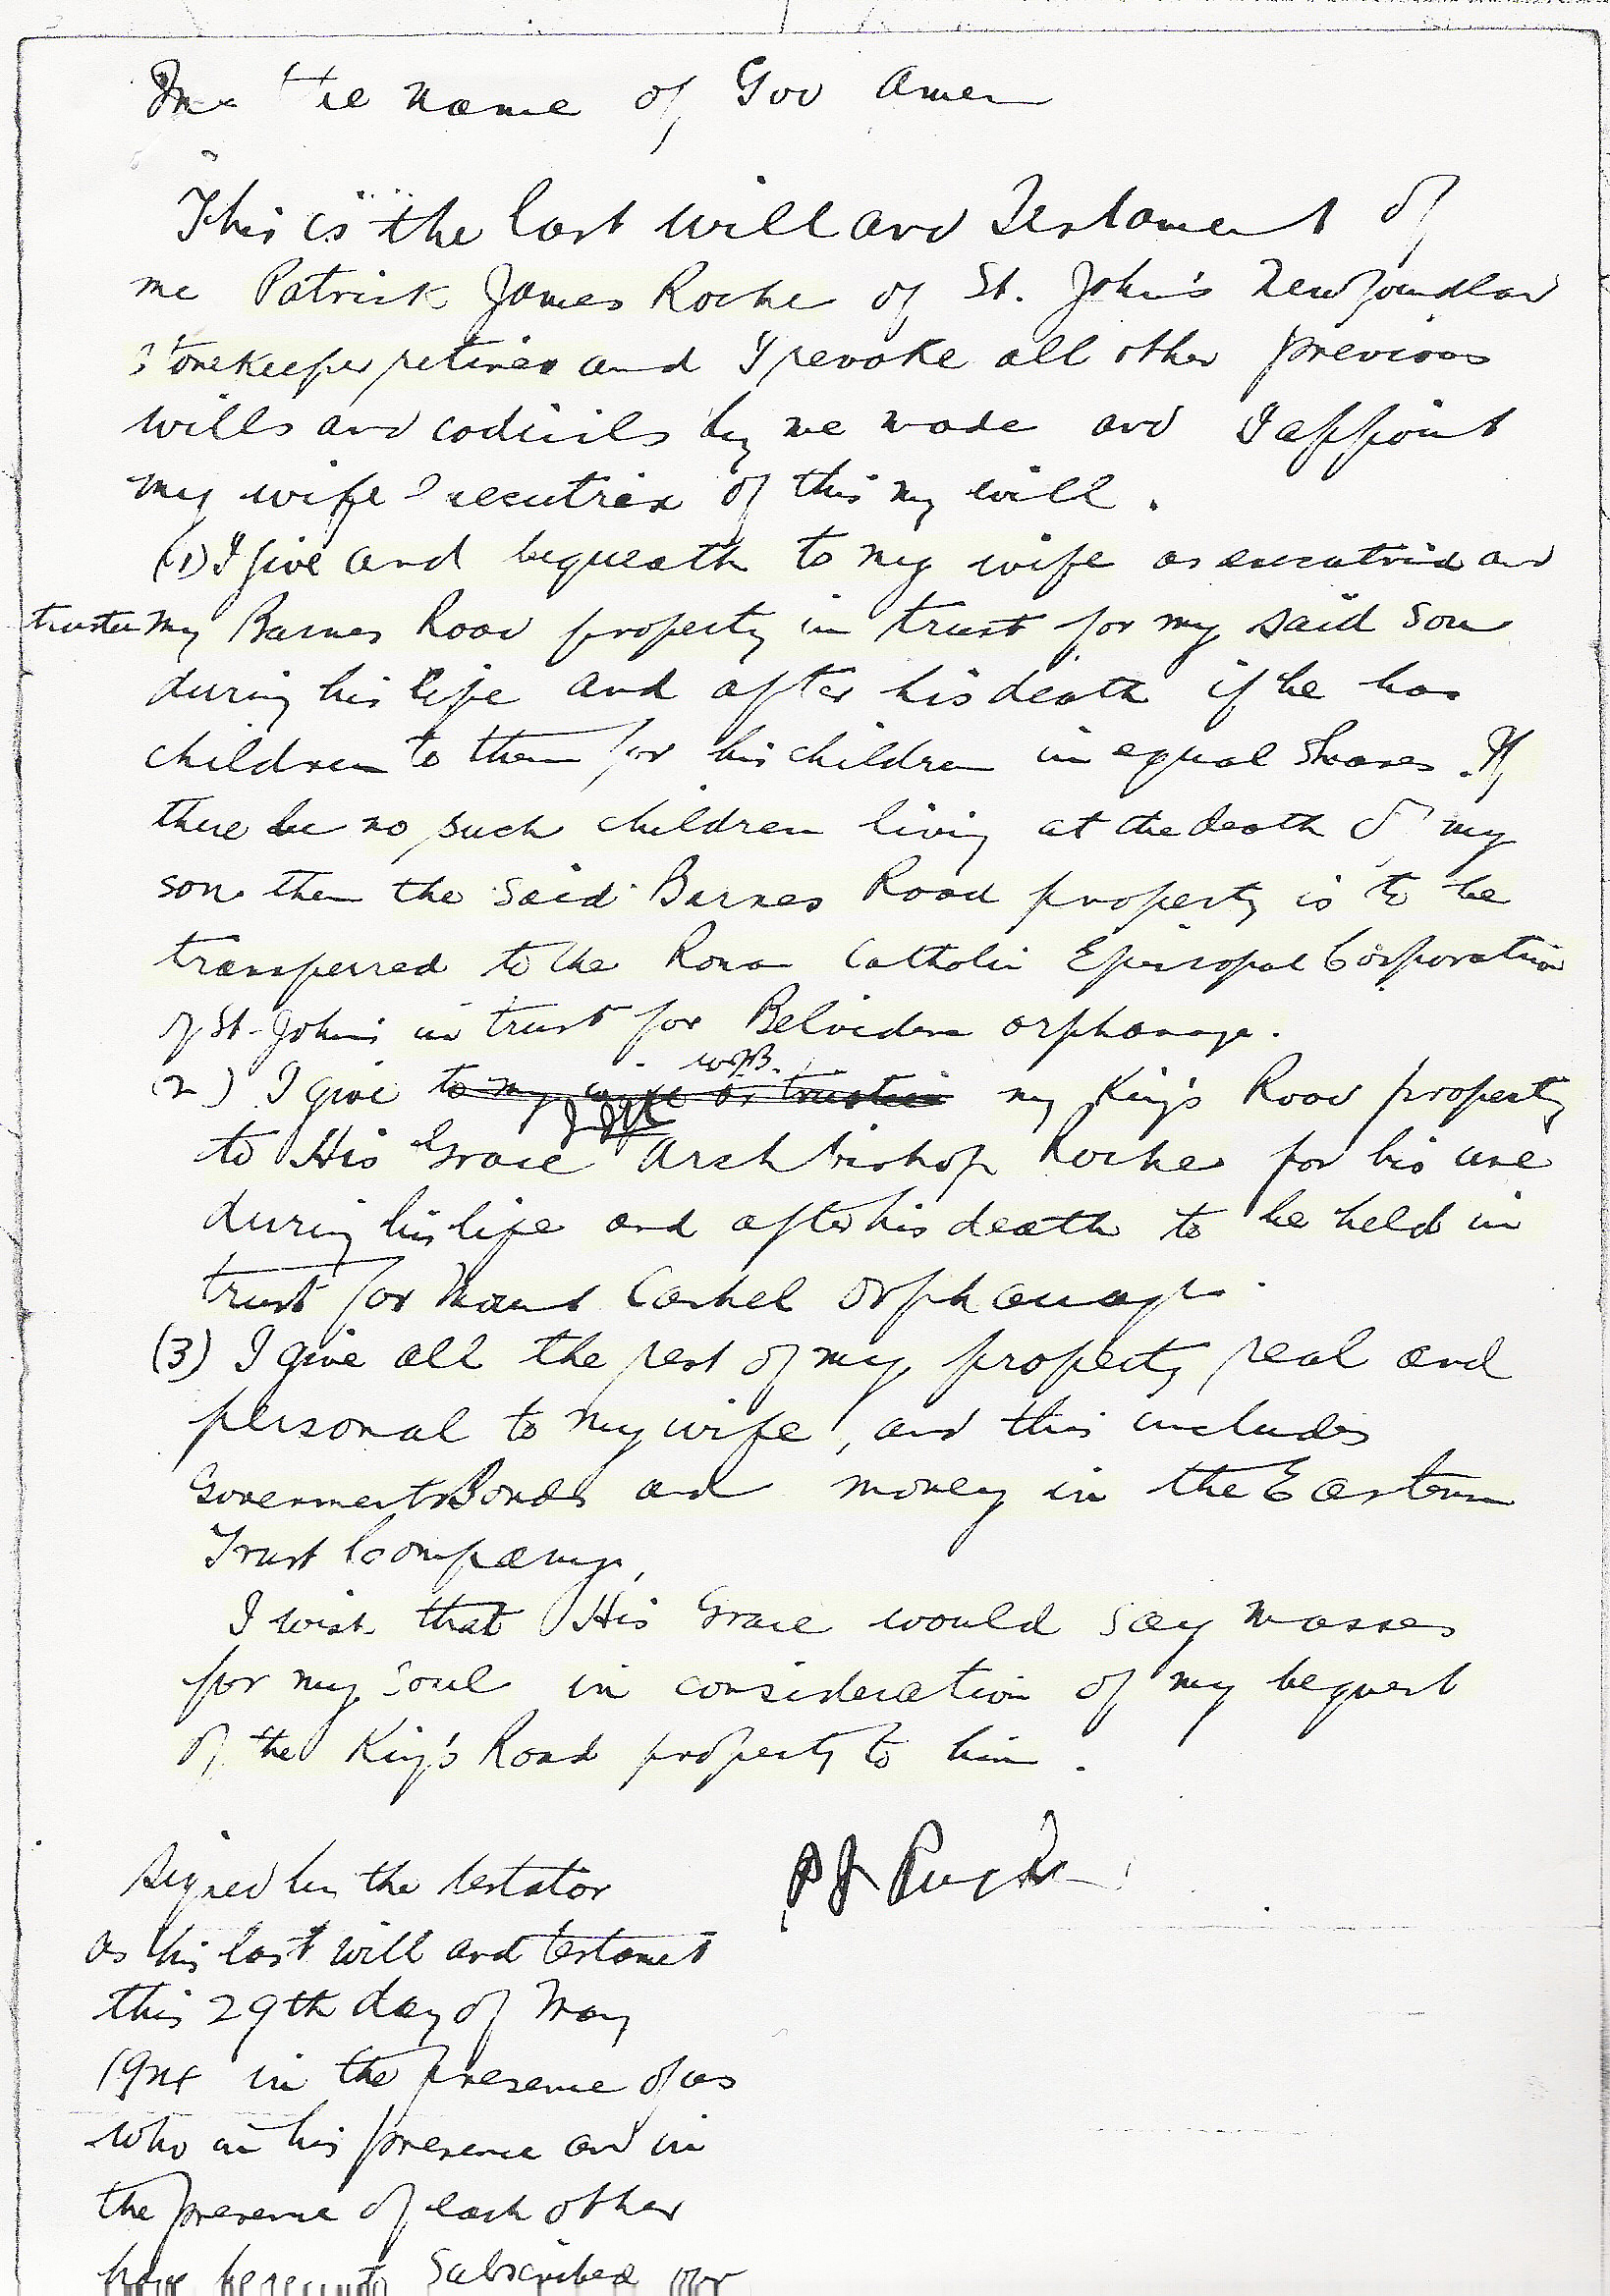 In the name of God Amen
This is the last will and Testament of
me Patrick James Roche of St. John's Newfoundland
Storekeeper retired and I revoke all other previous
wills and codicils by me made and I appoint
my wife executrix of this my will.
(1) I give and bequeath to my wife as executrix and
trustee my Barnes Road property in trust for my said son
during his life and after his death if he has
children to them for his children in equal shares. If
there be no such children living at the death of my
son then the said Barnes Road property is to be
transferred to the Roman Catholic Episcopal Corporation
of St. John's in trust for Belvidere orphanage.
(2) I give to my wife as trustee my King's Road property
to His Grace Archbishop Roche for his use
during his life and after his death to be held in
trust for Mount Cashel Orphanage.
(3) I give all the rest of my property real and
personal to my wife, and this includes
Government Bonds and money in the Eastern
Trust Company,
I wish that His Grace would say masses
for my soul in consideration of my bequest
of the King's Road property to him.
Signed by the testator
as his last will and testament
this 29th day of May
in the presence of us
who in his presence and in
the presence of each other
have hereunto subscribed our